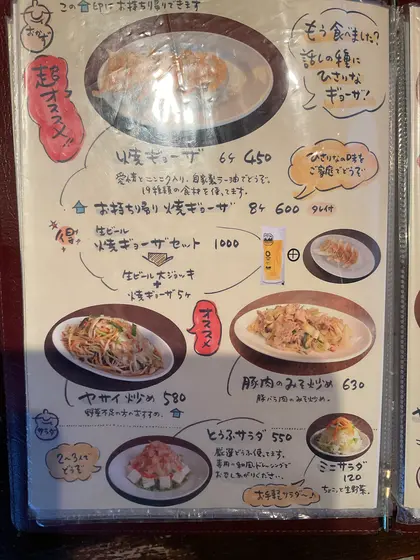 この 印はお持ち帰りできます
おかず
もう食べました?
話しの種に
ひさりな
ギョーザ!
超オススメ!!
焼ギョーザ 6ケ 450
愛情とニンニク入り。自家製ラー油でどうぞ。
19種類の食材を使ってます。
ひさりなの味を
ご家庭でどうぞ
お持ち帰り焼ギョーザ 8ケ 600 タレ付
得
生ビール
焼ギョーザセット 1000
生ビール大ジョッキ
+
焼ギョーザ5ケ
オススメ
ヤサイ炒め 580
野菜不足の方へおすすめ。
豚肉のみそ炒め 630
豚バラ肉のみそ炒め。
サラダ
2〜3人で
どうぞ
とうふサラダ 550
厳選とうふ使ってます。
専用の和風ドレッシングで
お召しあがりください。
ミニサラダ
120
ちょこっと生野菜。
お手軽サラダ〜♪